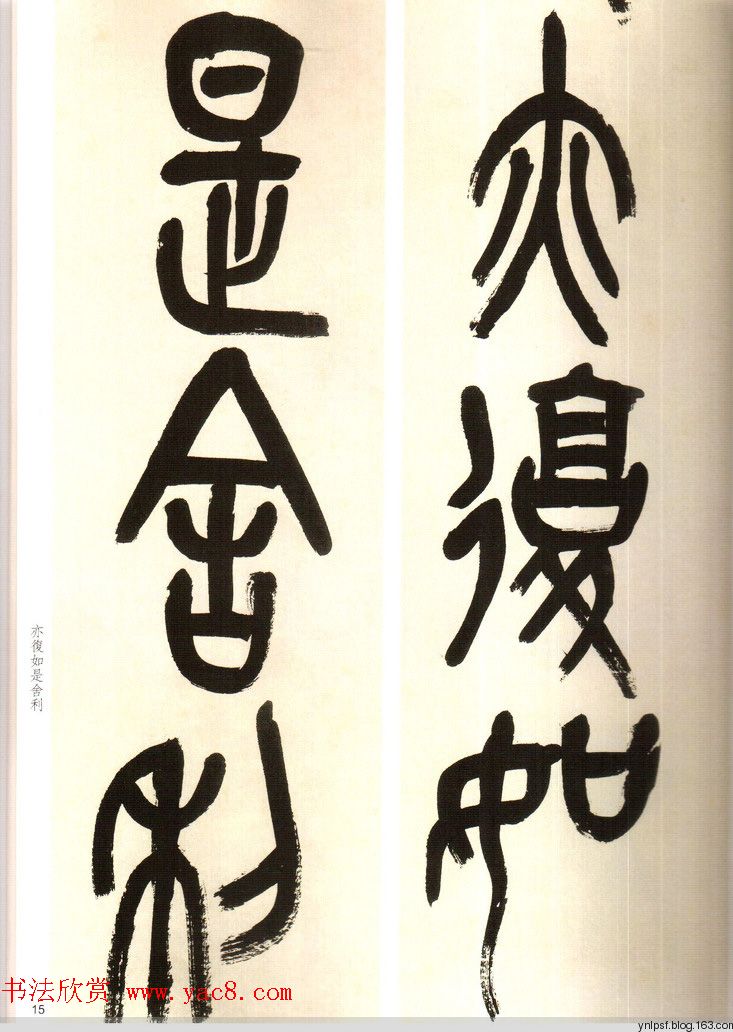 亦復如
是舍利
亦復如是舍利
书法欣赏 www.yac8.com
15
ynlpsf.blog.163.com